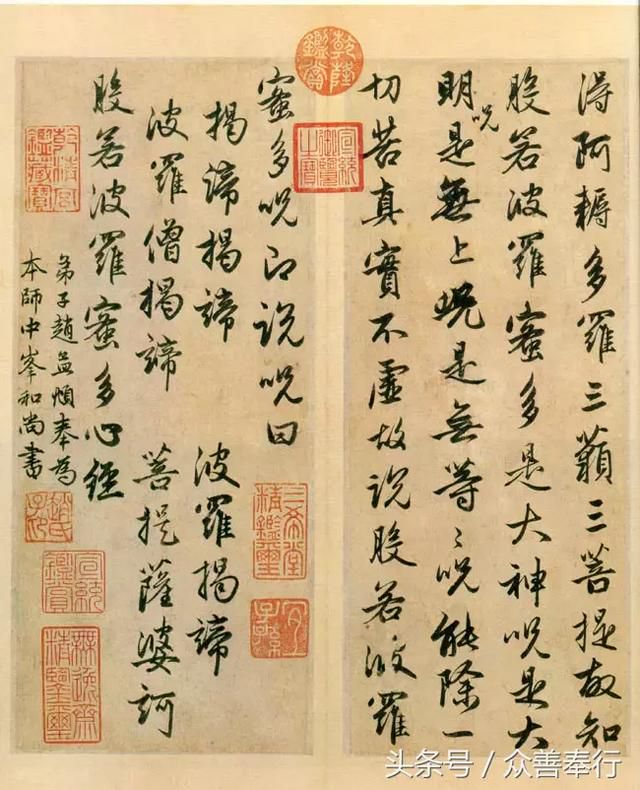 得阿耨多羅三藐三菩提故知
般若波羅蜜多是大神呪是大
明呪是無上呪是無等〻呪能除一
切苦真實不虛故說般若波羅
蜜多呪即說呪曰
揭諦揭諦 波羅揭諦
波羅僧揭諦 菩提薩婆訶
般若波羅蜜多心經
弟子趙孟頫奉為
本師中峯和尚書
乾隆鑑賞
宣統御覽之寶
三希堂精鑑璽
宜子孫
乾清宮鑑藏寶
趙氏子昂
宣統鑑賞
無逸齋精鑑璽
头条号 / 众善奉行